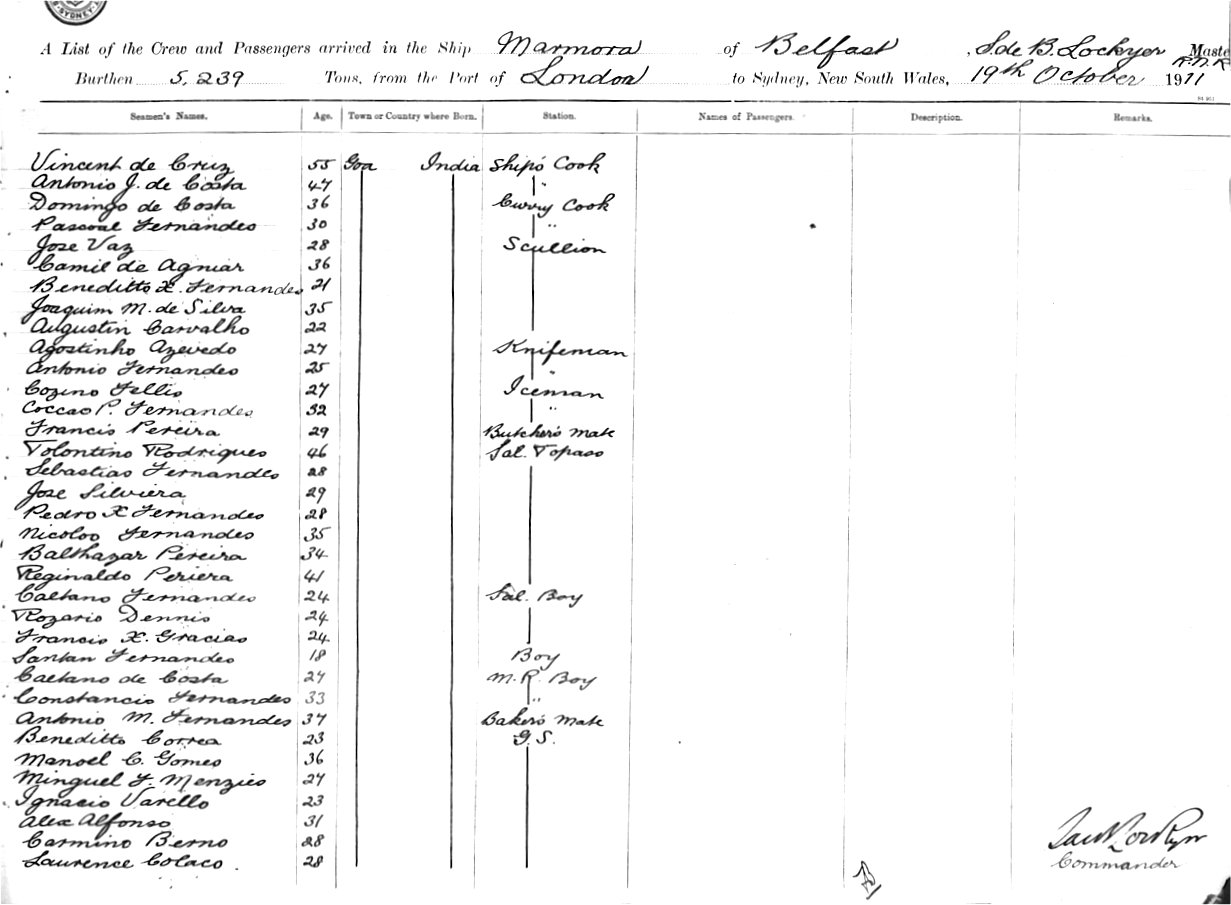 SYDNEY
A List of the Crew and Passengers arrived in the Ship Marmora of Belfast, S de B. Lockyer Maste
R.N.R
Burthen 5,239 Tons, from the Port of London to Sydney, New South Wales, 19th October 1911
Seamen's Names. Age. Town or Country where Born. Station. Names of Passengers. Description. Remarks.
Vincent de Cruz 55 Goa India Ship's Cook
Antonio J. de Costa 47 "
Domingo de Costa 36 Curry Cook
Pascoal Fernandes 30 "
Joze Vaz 28 Scullion
Camil de Agniar 36
Beneditto X. Fernandes 21
Joaquim M. de Silva 35
Augustin Carvalho 22
Agostinho Azevedo 27 Knifeman
Antonio Fernandes 25 "
Cozino Tellis 27 Iceman
Coccao P. Fernandes 32 "
Francis Pereira 29 Butcher's Mate
Tolontino Rodrigues 46 Sal. Topass
Sebastias Fernandes 28
Joze Silviera 29
Pedro X Fernandes 28
Nicoloo Fernandes 35
Balthazar Pereira 34
Reginaldo Periera 41
Caetano Fernandes 24 Sal. Boy
Rozario Dennis 24
Francis X. Gracias 24
Santan Fernandes 18 Boy
Caetano de Costa 27 M.R. Boy
Constancio Fernandes 33 "
Antonio M. Fernandes 37 Baker's Mate
Beneditto Correa 23 G.S.
Manoel C. Gomes 36
Minguel F. Menzies 27
Ignacio Varello 23
Alex Alfonso 31
Carmino Berno 28
Laurence Colaco. 28
Commander